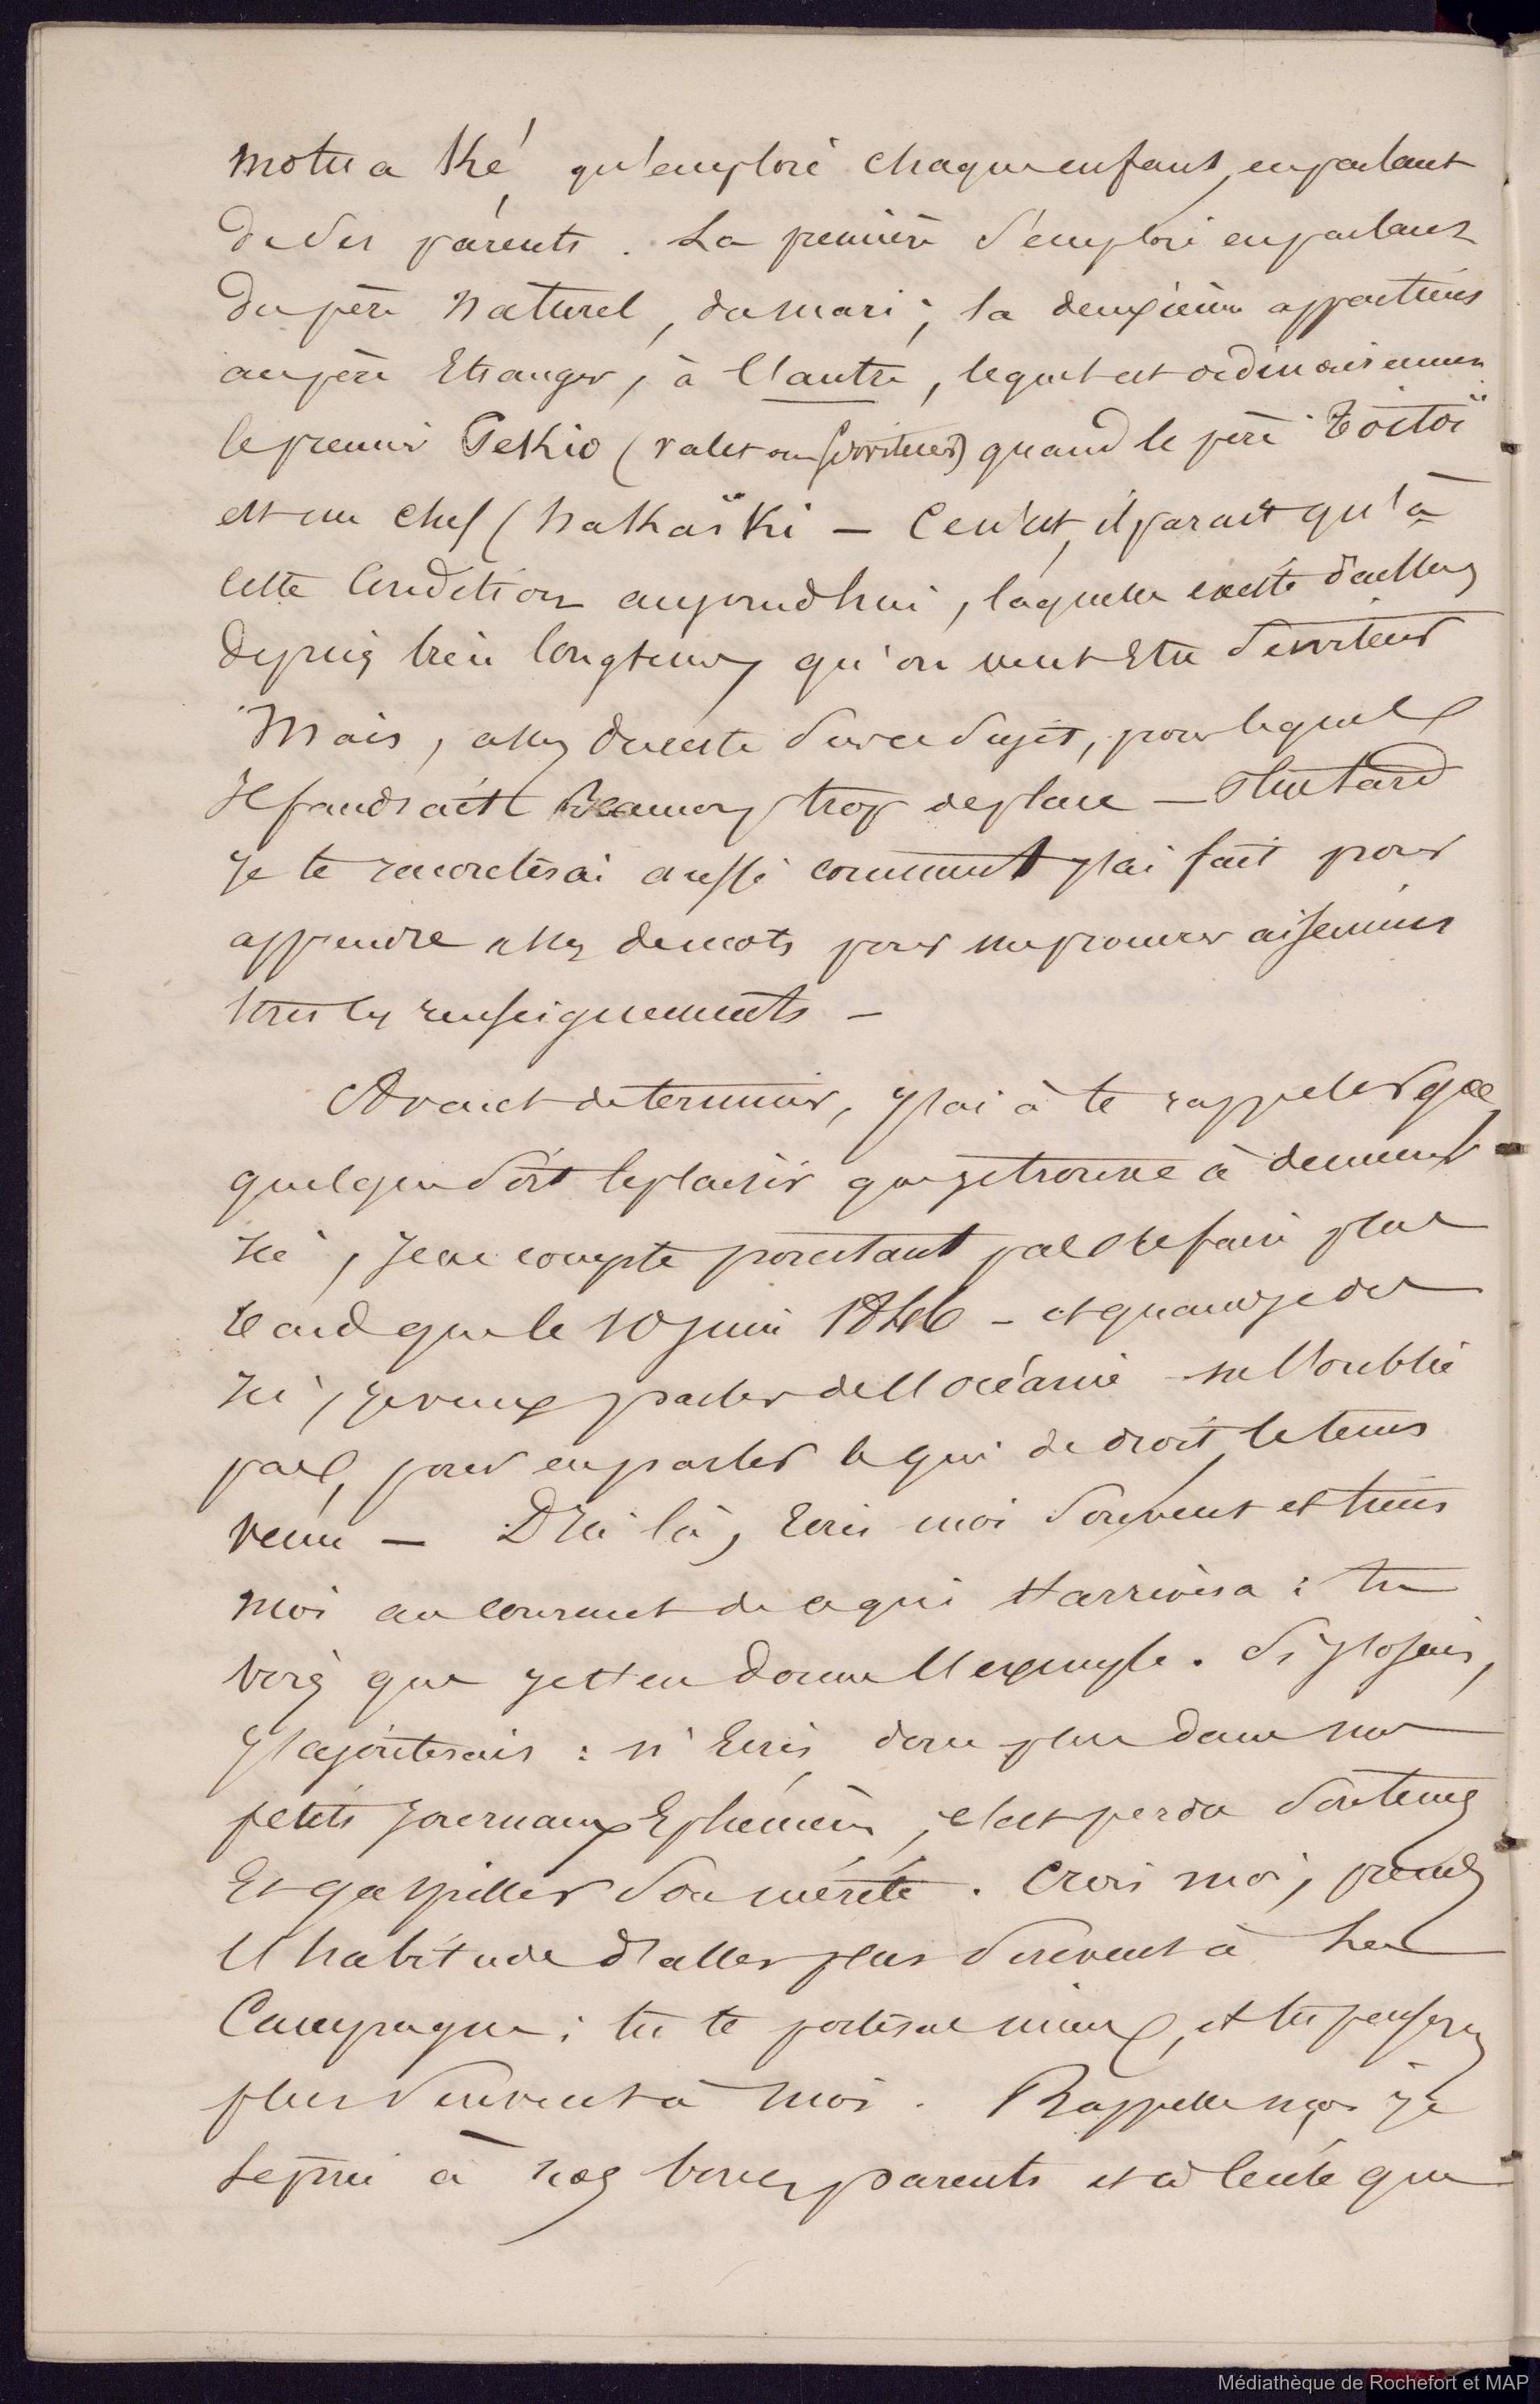 motua ké qu'emploie chaque enfant, en parlant
de ses parents. La première s'emploie en parlant
du père naturel, du mari; la deuxième appartient
au père Etranger, à l'autre, lequel est ordinairement
le premier Pekio (valet ou serviteur) quand le père toïtoï
est un chef (hakaïki — Ce n'est, il parait qu'à
cette Condition aujourd'hui, laquelle existe d'ailleurs
depuis bien longtems qu'on veut Etre Serviteur
Mais, assez de cette sur ce sujet, pour lequel
Il faudrait beaucoup trop de place — Plus tard
Je te raconterai aussi comment j'ai fait pour
apprendre assez de mots pour me procurer aisement
tous les renseignements —
Avant de terminer, j'ai à te rappeler que
quelque soit le plaisir que je trouve à demeurer
Ici, Je ne compte pourtant pas le faire plus
tard que le 10 juin 1846 — et quand je dis
Ici, je veux parler de l'océanie ne l'oublie
pas, pour en parler à qui de droit, le tems
venu — D'Ici là, Ecris moi Souvent et tiens
moi au courant de ce qui t'arrivera : tu
vois que je t'en donne l'exemple. Si j'osais,
J'ajouterais : n'Ecris donc plus dans nos
petits Journaux Ephémères, c'est perdre son tems
Et gaspiller Son mérite. Crois moi, prends
l'habitude d'aller plus Souvent à la
Campagne; tu te porteras mieux, et tu penseras
plus Souvent à moi. Rappelle moi je
te prie à nos bons parents et à ceux que
Médiathèque de Rochefort et MAP